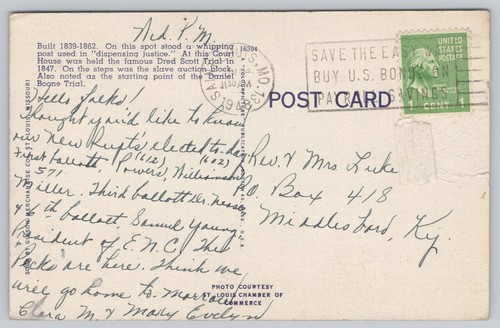 Wed. P.M.
Built 1839-1862. On this spot stood a whipping
post used in "dispensing justice." At this Court
House was held the famous Dred Scott Trial in
1847. On the steps was the slave auction block.
Also noted as the starting point of the Daniel
Boone Trial.
16394
ST. LOUIS, MO. 13
1130 AM
SAVE THE EA
BUY U.S. BONDS ON
PAYROLL SAVINGS
UNITED
STATES
POSTAGE
1 CENT 1
POST CARD
Hello folks!
Thought you'd like to know
our new Supts elected to-day
First ballott, Powers, Williamson
(612) (602)
571
Miller. Third ballott Dr.
th ballott, Samuel Young
President of E.N.C. The
are here. Think we
will go home to-morrow
Clara M. & Mary Evelyn
Rev. & Mrs Luke
P.O. Box 418
Middlesboro, Ky.
PHOTO COURTESY
ST. LOUIS CHAMBER OF
COMMERCE